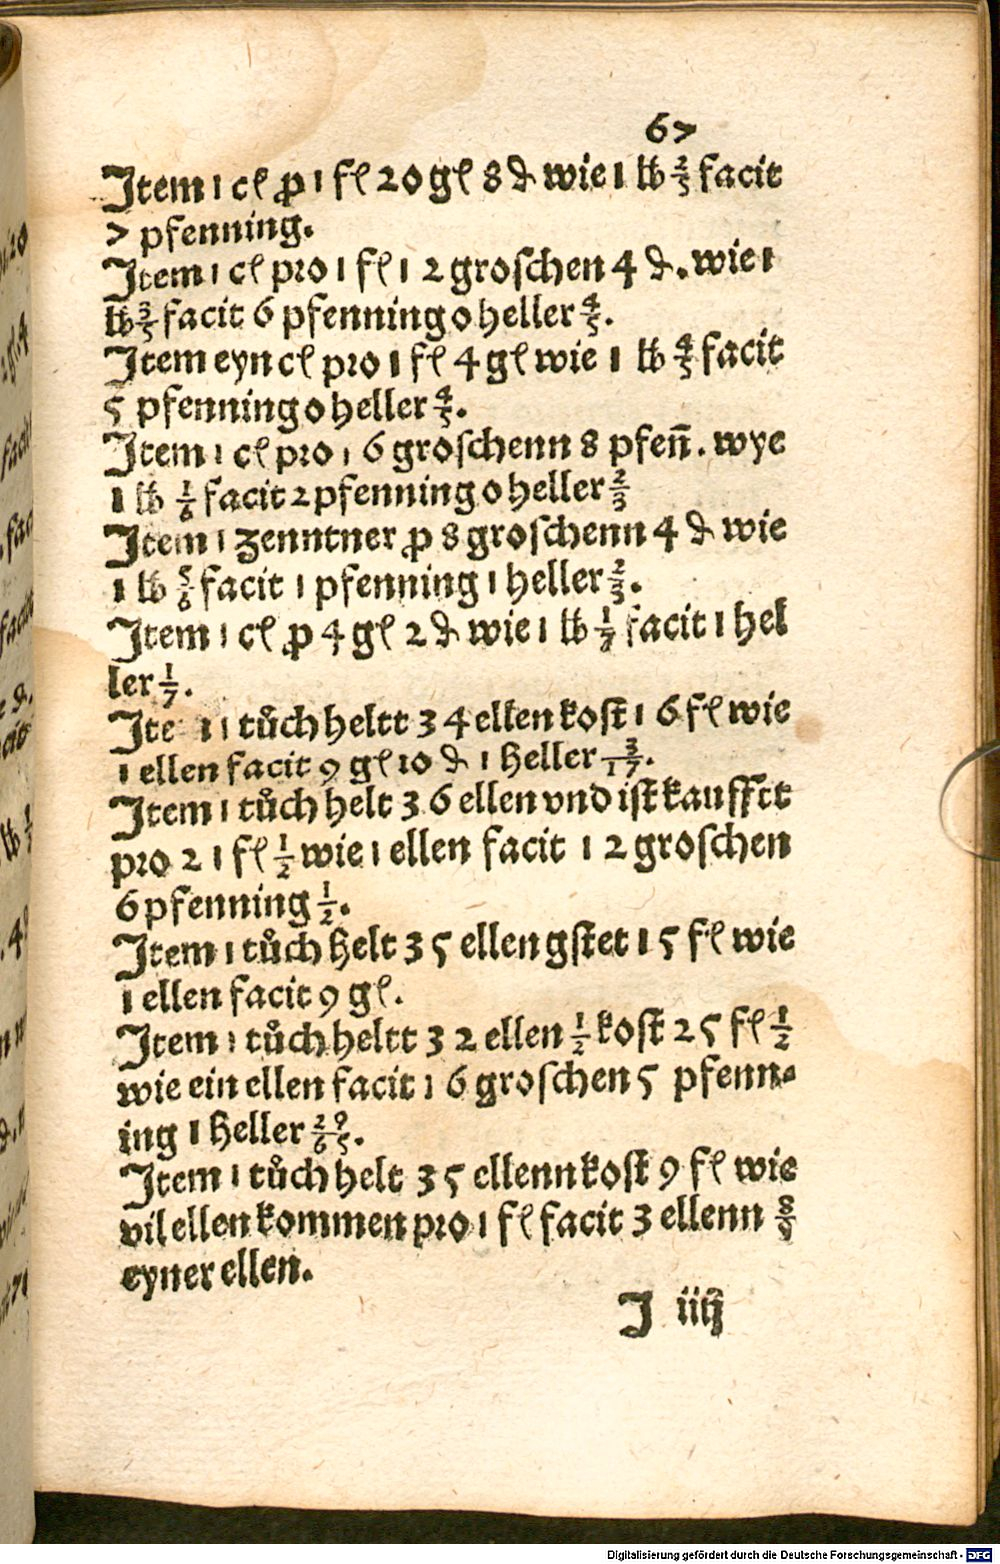 67
Jtem 1 cl ꝓ 1 fl 20 gl 8 ₰ wie 1 ℔ 2/3 facit
7 pfenning.
Jtem 1 cl pro 1 fl 1 2 groschen 4 ₰. wie 1
℔ 3/5 facit 6 pfenning 0 heller 4/5.
Jtem eyn cl pro 1 fl 4 gl wie 1 ℔ 4/5 facit
5 pfenning 0 heller 4/5.
Jtem 1 cl pro 1 6 groschenn 8 pfeñ. wye
1 ℔ 1/6 facit 2 pfenning 0 heller 2/3
Jtem 1 zenntner ꝓ 8 groschenn 4 ₰ wie
1 ℔ 5/6 facit 1 pfenning 1 heller 2/3.
Jtem 1 cl ꝓ 4 gl 2 ₰ wie 1 ℔ 1/7 facit 1 hel
ler 1/7.
Jte 1 tůch heltt 3 4 ellen kost 1 6 fl wie
1 ellen facit 9 gl 10 ₰ 1 heller 3/17.
Jtem 1 tůch helt 3 6 ellen vnd ist kaufftt
pro 2 1 fl 1/2 wie 1 ellen facit 1 2 groschen
6 pfenning 1/2.
Jtem 1 tůch helt 3 5 ellen gstet 1 5 fl wie
1 ellen facit 9 gl.
Jtem 1 tůch heltt 3 2 ellen 1/2 kost 2 5 fl 1/2
wie ein ellen facit 1 6 groschen 5 pfenn-
ing 1 heller 29/65.
Jtem 1 tůch helt 3 5 ellenn kost 9 fl wie
vil ellen kommen pro 1 fl facit 3 ellenn 8/9
eyner ellen.
J iiij
Digitalisierung gefördert durch die Deutsche Forschungsgemeinschaft - DFG